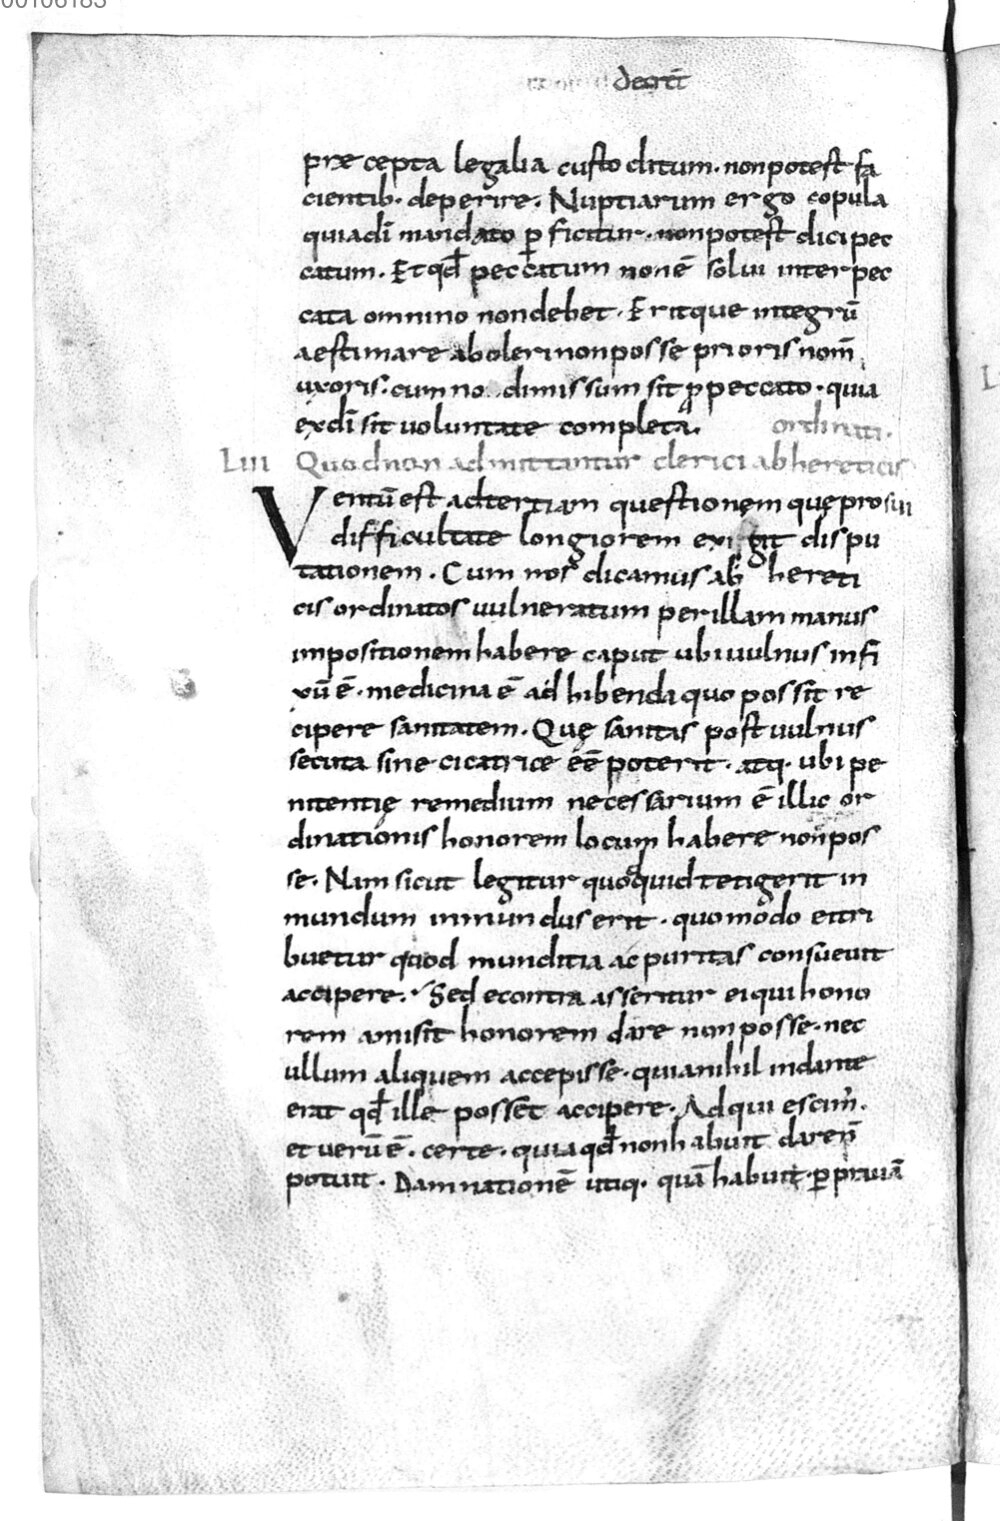 decrēt
præcepta legalia custoditum· non potest fa
cientib· deperire· Nuptiarum ergo copula
quia dī mandato ꝑficitur· non potest dici pec
catum· Et qđ peccatum non ē solui inter pec
cata omnino non debet· Eritque integrū
aestimare aboleri non posse prioris nom̄
uxoris· cum no dimissum sit ꝓ peccato· quia
ex dī sit uoluntate completa·
ordinati·
LIII Quod non admittantur clerici ab hereticis
Ventū est ad tertiam questionem quę pro sui
difficultate longiorem exigit dispu
tationem· Cum nos dicamus ab hereti
cis ordinatos uulneratum per illam manus
impositionem habere caput ubi uulnus infi
xū ē· medicina ē adhibenda quo possit re
cipere sanitatem· Quę sanitas post uulnus
secuta sine cicatrice eē poterit· atq· ubi pe
nitentię remedium necessarium ē illic or
dinationis honorem locum habere non pos
se· Nam sicut legitur quod quid tetigerit in
mundum inmundus erit· quomodo ei tri
buetur quod munditia ac puritas consueuit
accipere· Sed econtra asseritur ei qui hono
rem amisit honorem dare non posse· nec
ullum aliquem accepisse· quia nihil in dante
erat qđ ille posset accipere· Adquiescim̄·
et uerū ē· certe· quia qđ non habuit dare n̄
potuit· Damnationē utiq· quā habuit· ꝑ prauā